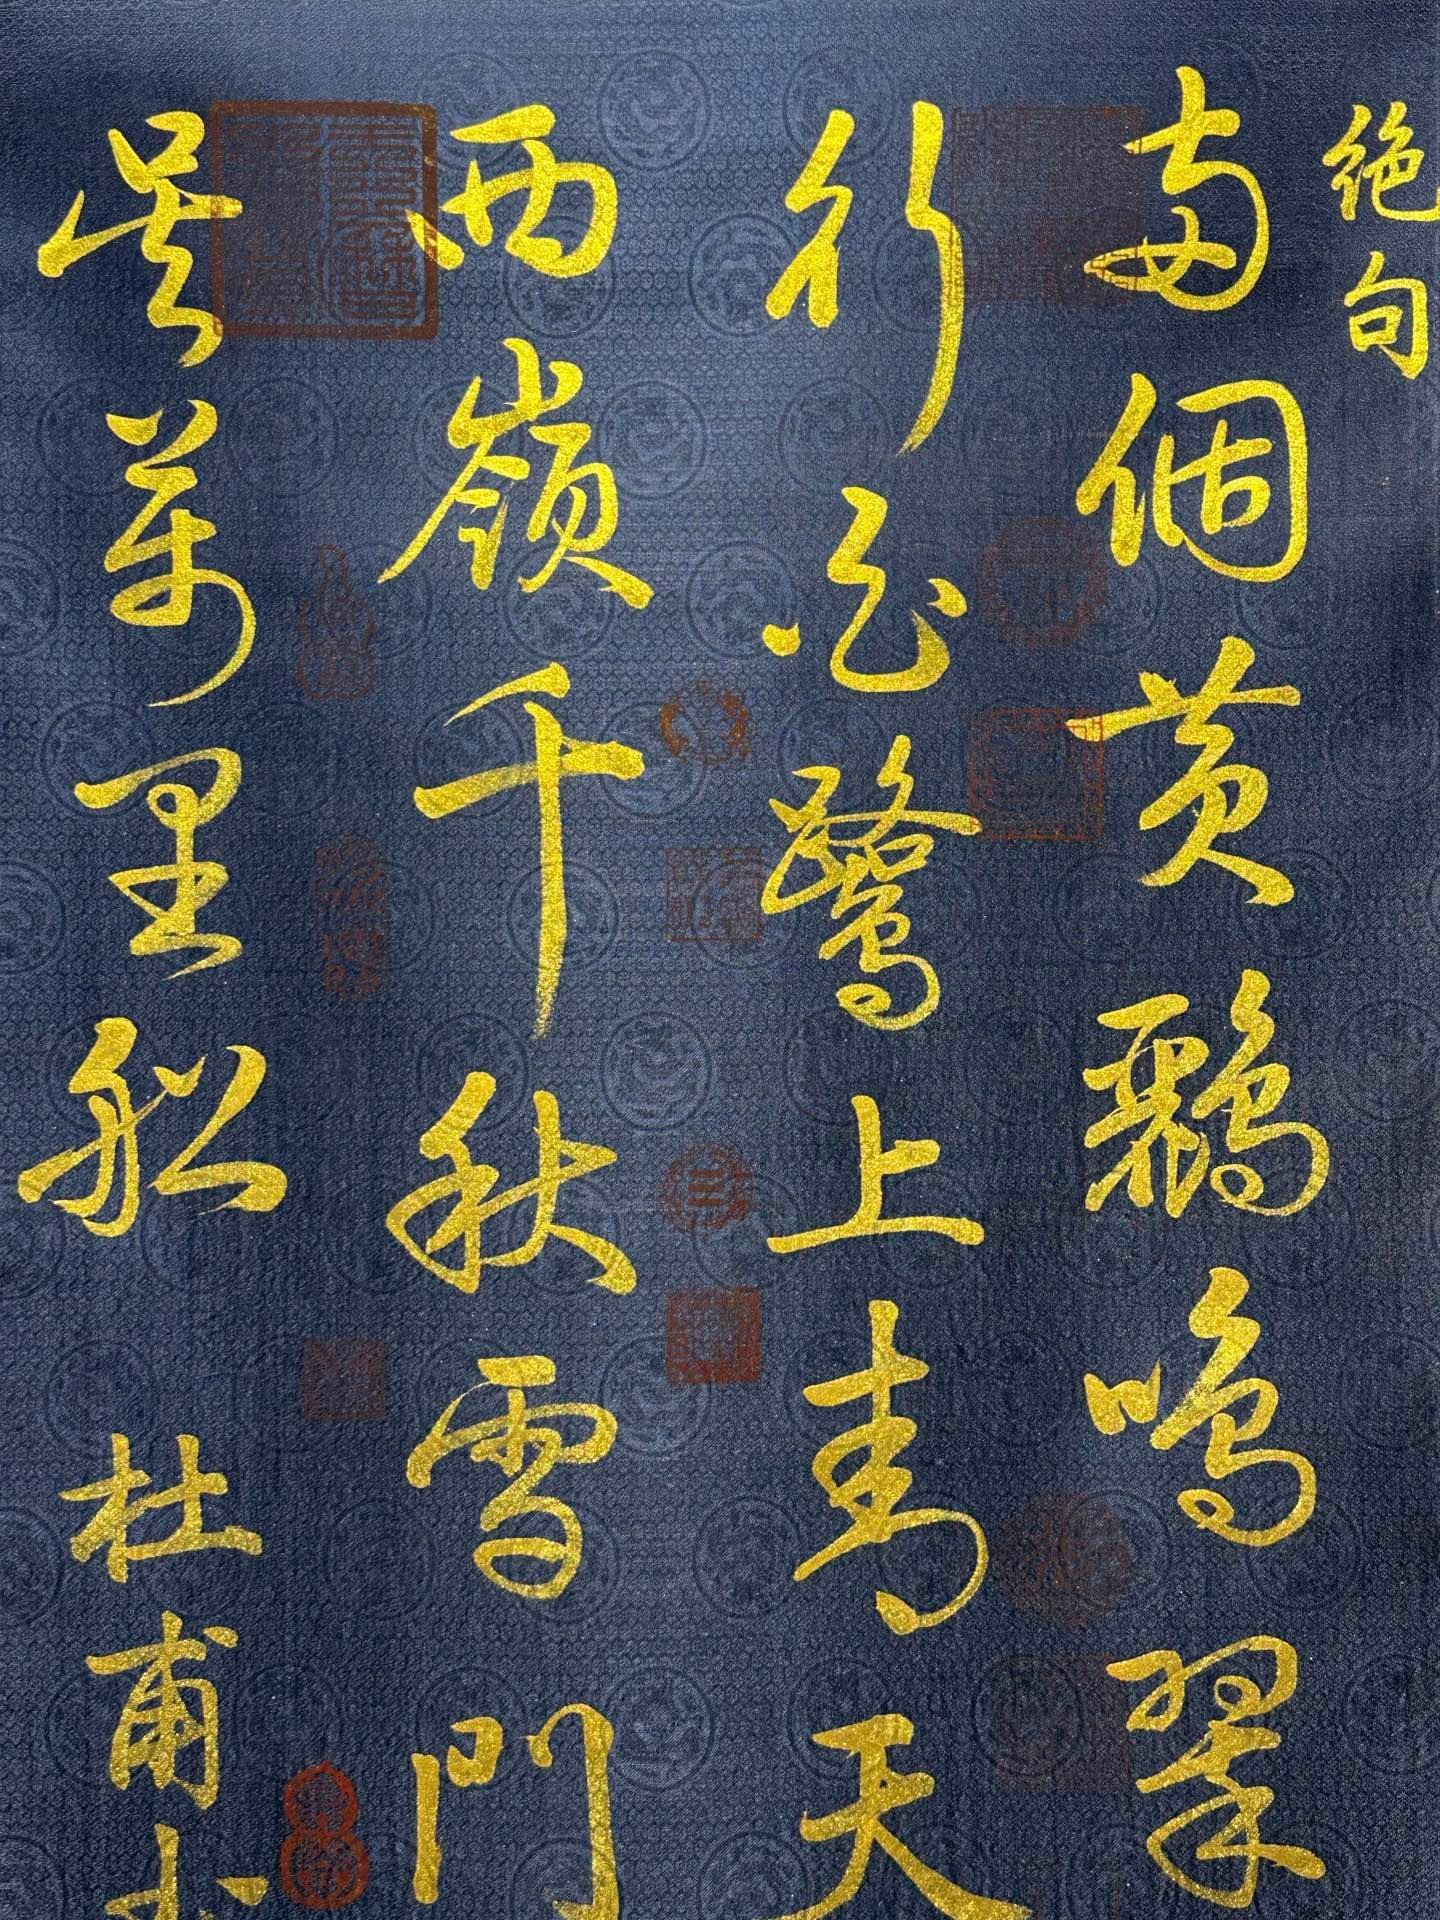 绝句
两個黄鸝鳴翠
行白鷺上青天
西嶺千秋雪門
吴萬里船 杜甫